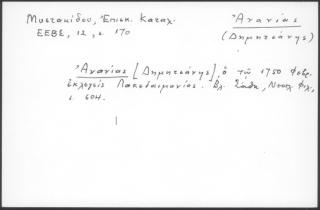 Μυστακίδου, Ἐπισκ. Καταλ.
ΕΕΒΣ, 12, σ. 170
Ἀνανίας
(Δημητσάνης)
Ἀνανίας [Δημητσάνης], ὁ τῷ 1750 Φεβρ.
ἐκλεγεὶς Λακεδαιμονίας. Βλ. Σάθα, Νεοελ. Φιλ,
σ. 604.